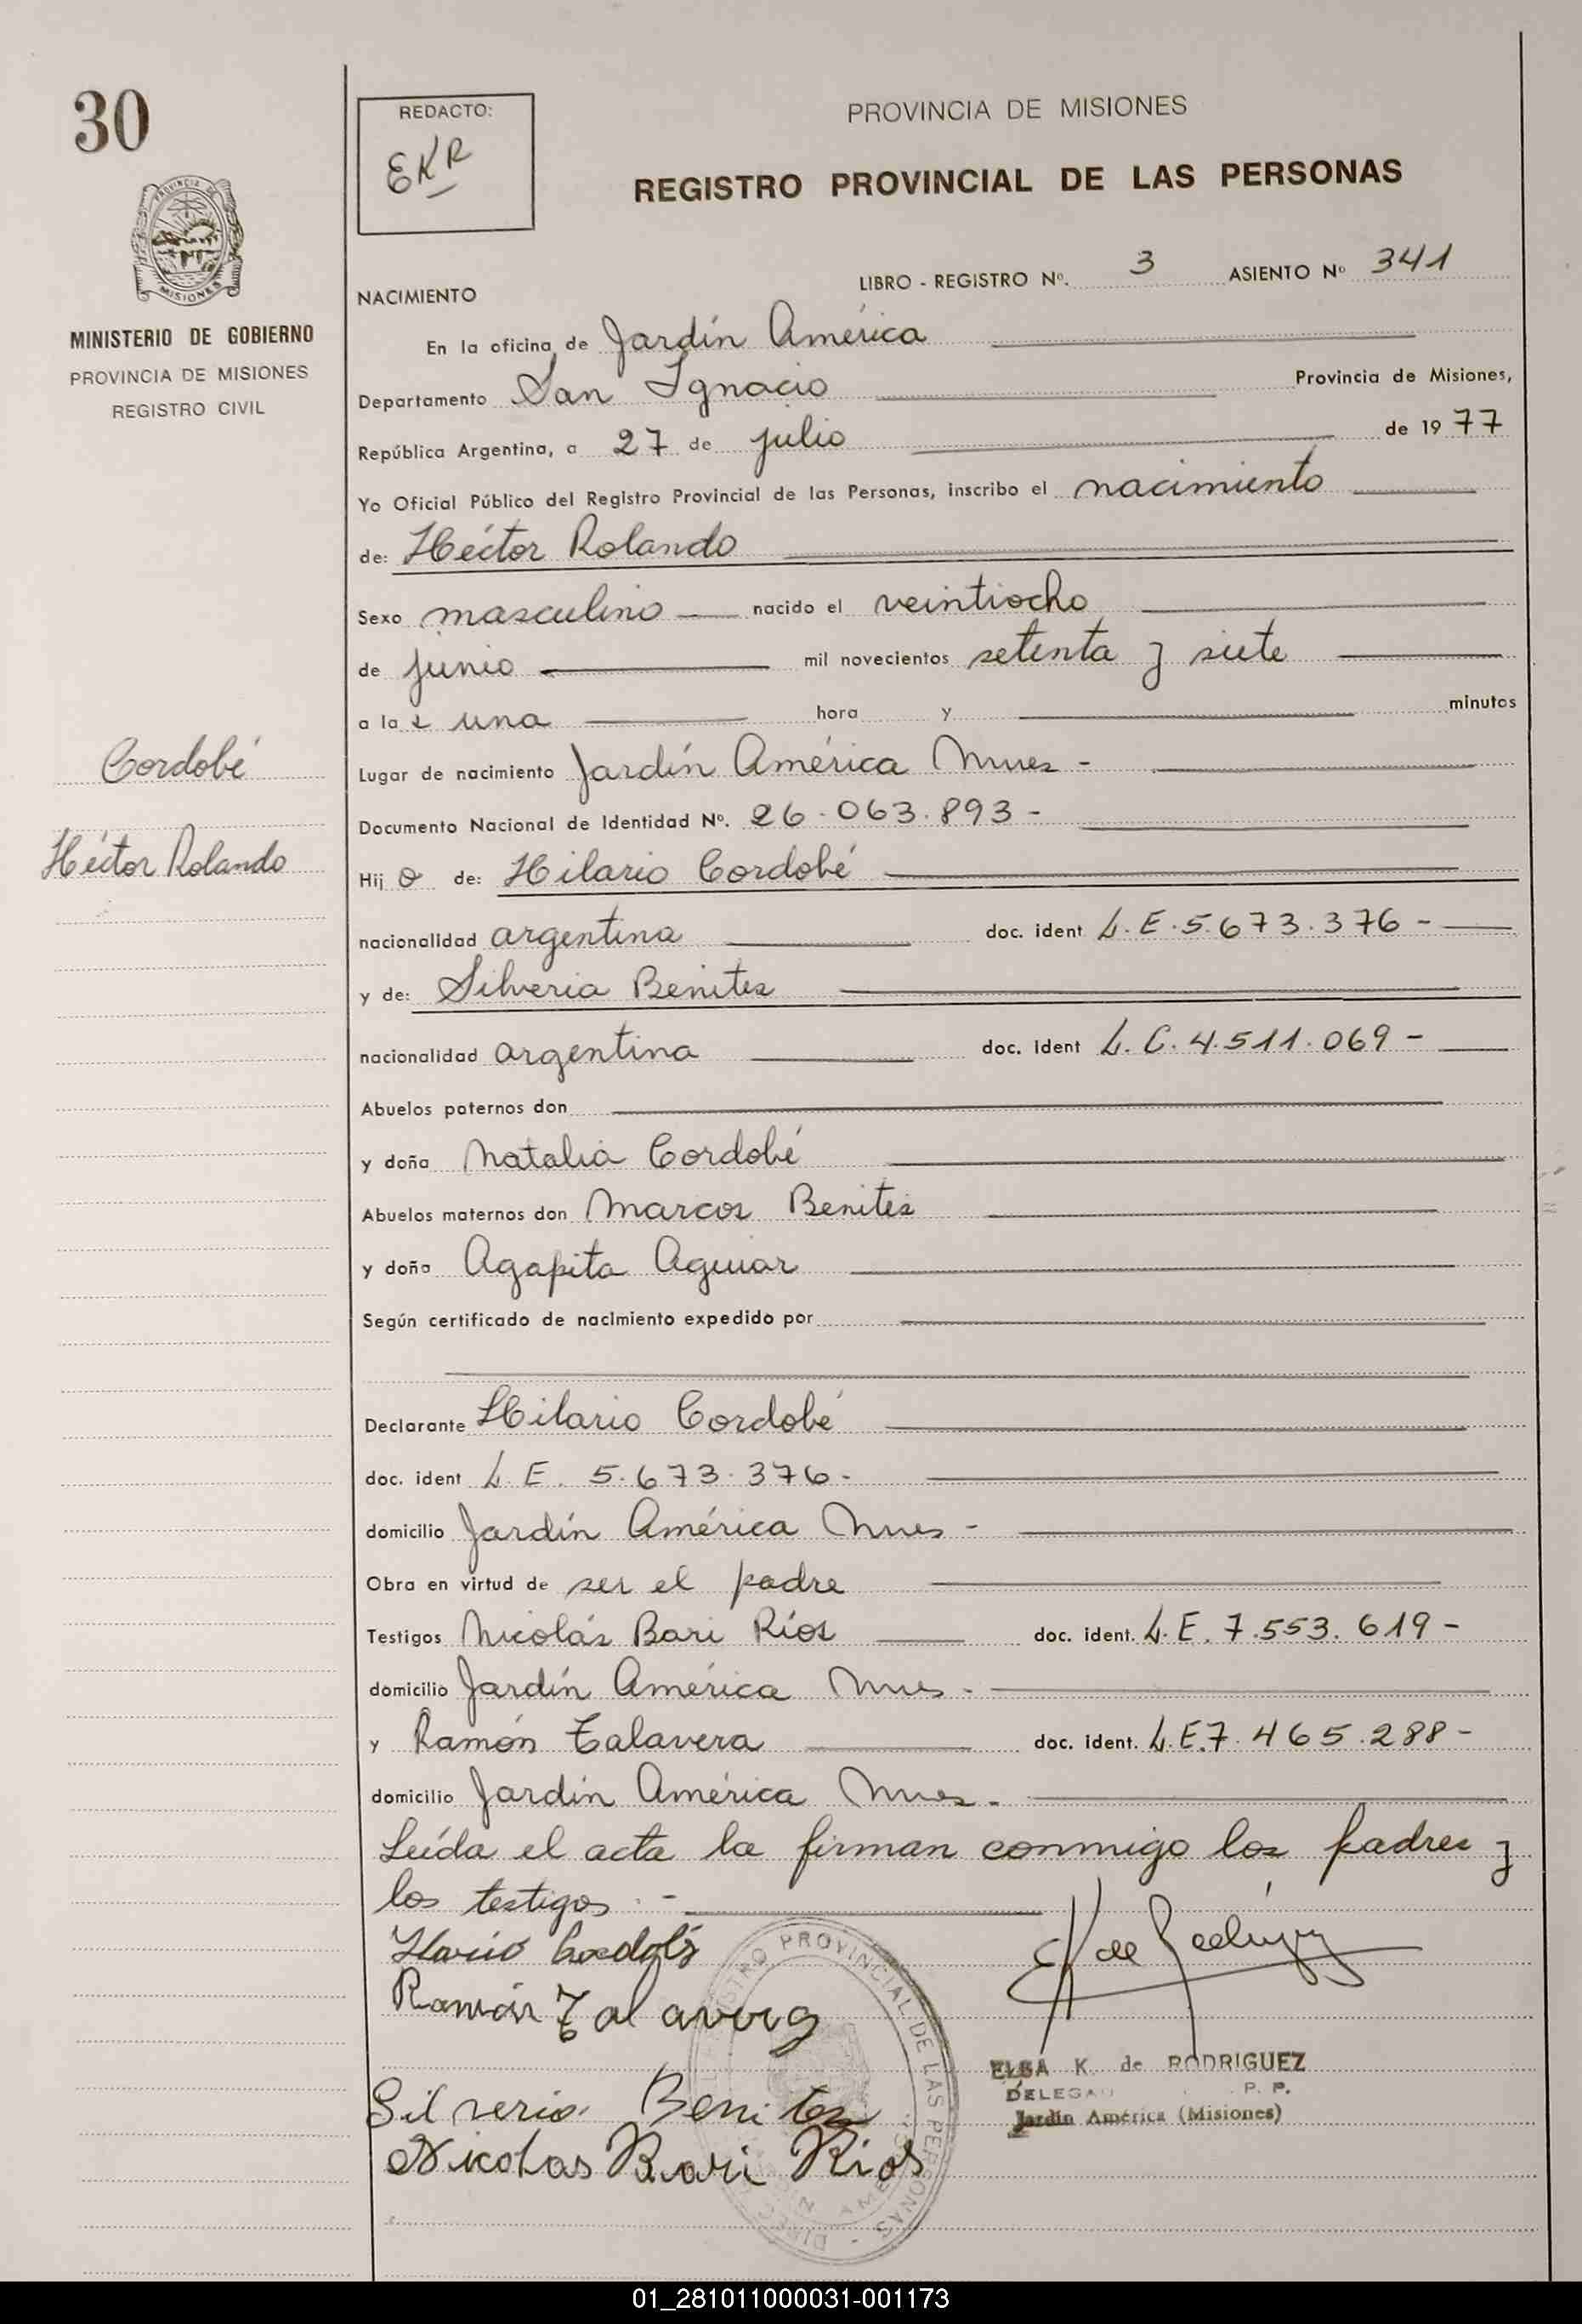 30
REDACTO:
EKR
PROVINCIA DE MISIONES
REGISTRO PROVINCIAL DE LAS PERSONAS
PROVINCIA DE
MISIONES
MINISTERIO DE GOBIERNO
PROVINCIA DE MISIONES
REGISTRO CIVIL
LIBRO - REGISTRO Nº. 3 ASIENTO Nº 341
NACIMIENTO
En la oficina de Jardín América
Departamento San Ignacio Provincia de Misiones,
República Argentina, a 27 de julio de 1977
Yo Oficial Público del Registro Provincial de las Personas, inscribo el nacimiento
de: Héctor Rolando
Sexo masculino nacido el veintiocho
de junio mil novecientos setenta y siete
a la s una hora y minutos
Cordobé
Héctor Rolando
Lugar de nacimiento Jardín América Mnes -
Documento Nacional de Identidad Nº. 26.063.893 -
Hij o de: Hilario Cordobé
nacionalidad argentina doc. ident L.E. 5.673.376 -
y de: Silveria Benitez
nacionalidad argentina doc. ident L.C. 4.511.069 -
Abuelos paternos don
y doña Natalia Cordobé
Abuelos maternos don Marcos Benitez
y doña Agapita Aguiar
Según certificado de nacimiento expedido por
Declarante Hilario Cordobé
doc. ident L.E. 5.673.376 -
domicilio Jardín América Mnes -
Obra en virtud de ser el padre
Testigos Nicolás Bari Ríos doc. ident. L.E. 7.553.619 -
domicilio Jardín América Mnes -
y Ramón Talavera doc. ident. L.E. 7.465.288 -
domicilio Jardín América Mnes -
Leída el acta la firman conmigo los padres y
los testigos . -
Ilario Cordobé
Ramón Talavera
EK de Rodríguez
Silveria Benitez
Nicolas Bari Rios
REGISTRO PROVINCIAL DE LAS PERSONAS
ELSA K. de RODRIGUEZ
P. P.
Jardín América (Misiones)
01_281011000031-001173